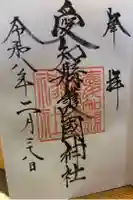 奉拝
愛知縣護國神社
令和八年二月二八日